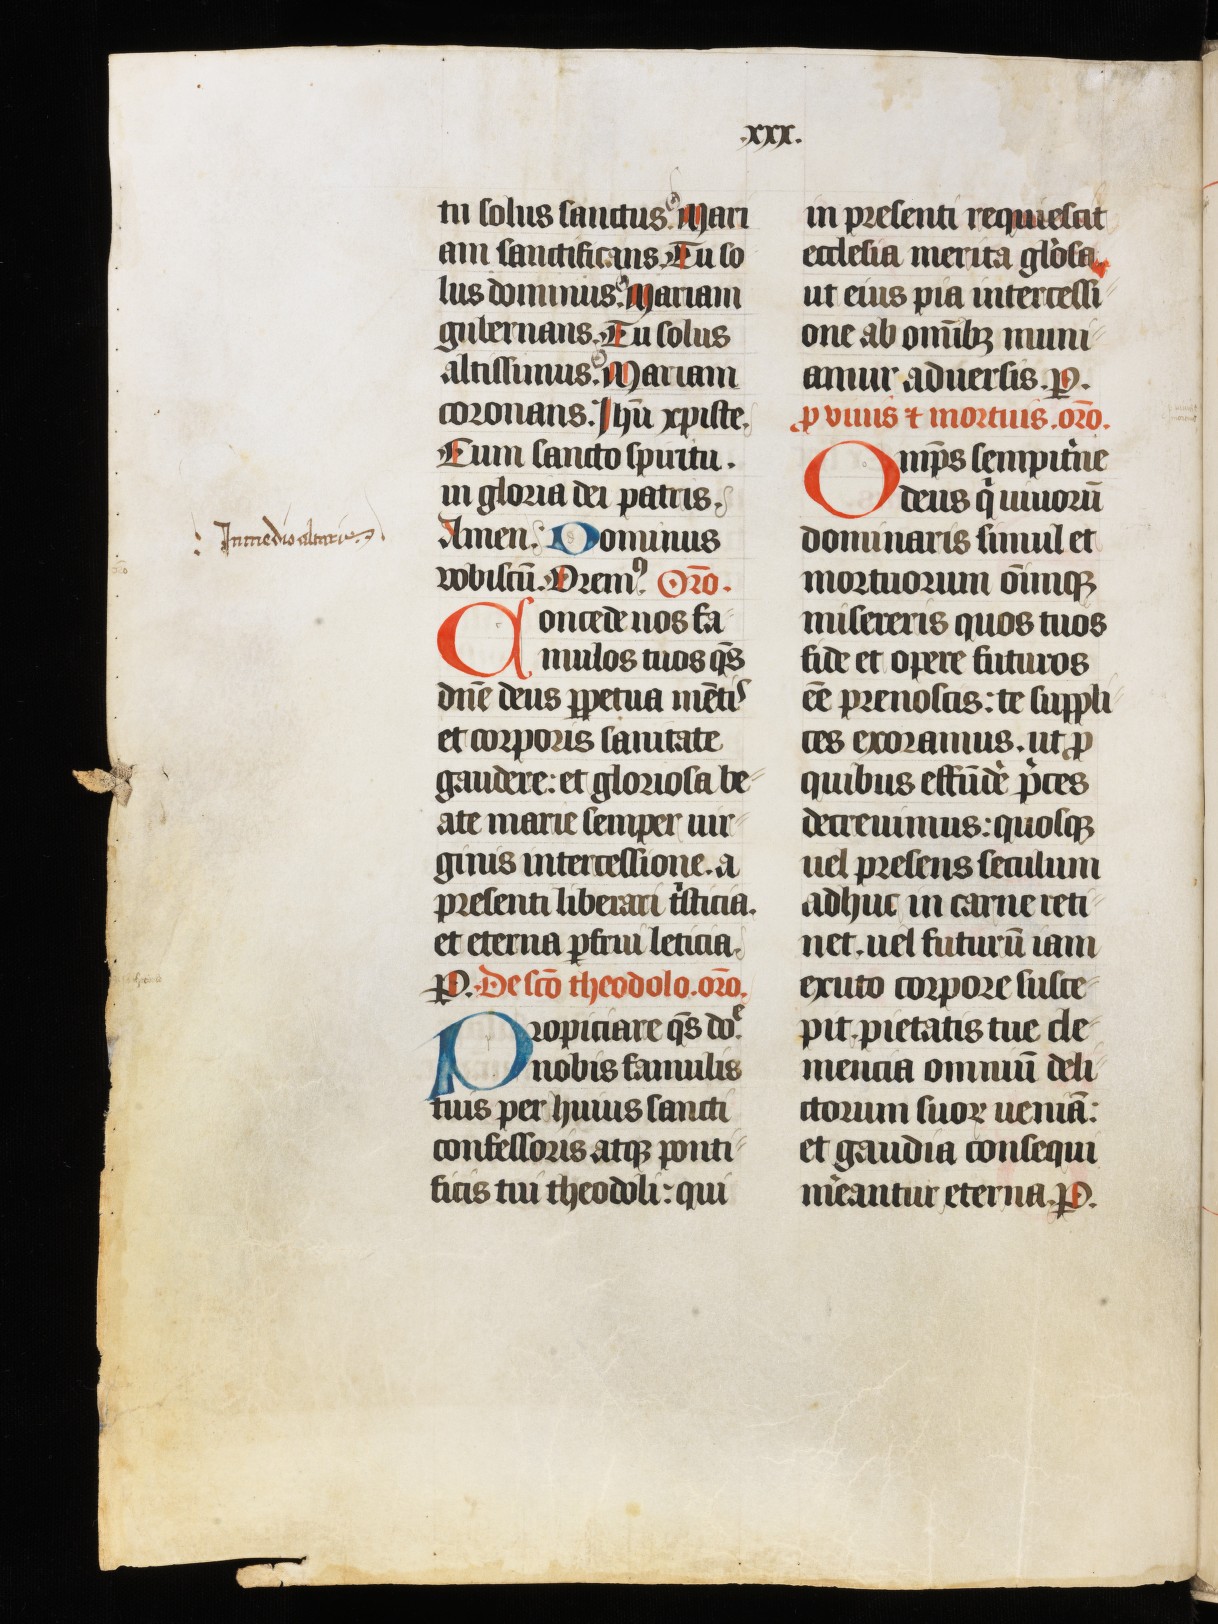 .xxx.
tu solus sanctus. Mari
am sanctificans. Tu so
lus dominus. Mariam
gubernans. Tu solus
altissimus. Mariam
coronans. Jhū xpiste.
Cum sancto spiritu.
in gloria dei patris.
Amen. Dominus
vobiscū. Oremꝰ. Oro̅.
: In medio altaris
Concede nos fa
mulos tuos q̄s
dn̄e deus ꝑpetua mētis
et corporis sanitate
gaudere: et gloriosa be
ate marie semper uir
ginis intercessione. a
presenti liberari tͥsticia.
et eterna ꝑfrui leticia.
P. De scō theodolo. oro̅.
Propiciare q̄s do͛.
nobis famulis
tuis per huius sancti
confessoris atqꝫ ponti
ficis tui theodoli: qui
in presenti requiescit
ecclesia merita glo͛sa.
ut eius pia intercessi
one ab omībꝫ muni
amur aduersis. P.
ꝓ viuis ⁊ mortuis. oro̅.
Omp̄s sempit͛ne
deus qͥ uiuorū
dominaris simul et
mortuorum oīmqꝫ
misereris quos tuos
fide et opere futuros
ēē prenoscis: te suppli
ces exoramus. ut ꝓ
quibus effūde͛ p͛ces
decreuimus: quosqꝫ
uel presens seculum
adhuc in carne reti
net. uel futurū iam
exuto corpore susce
pit. pietatis tue cle
mencia omniū deli
ctorum suoꝝ ueniā:
et gaudia consequi
m͛eantur eterna. P.